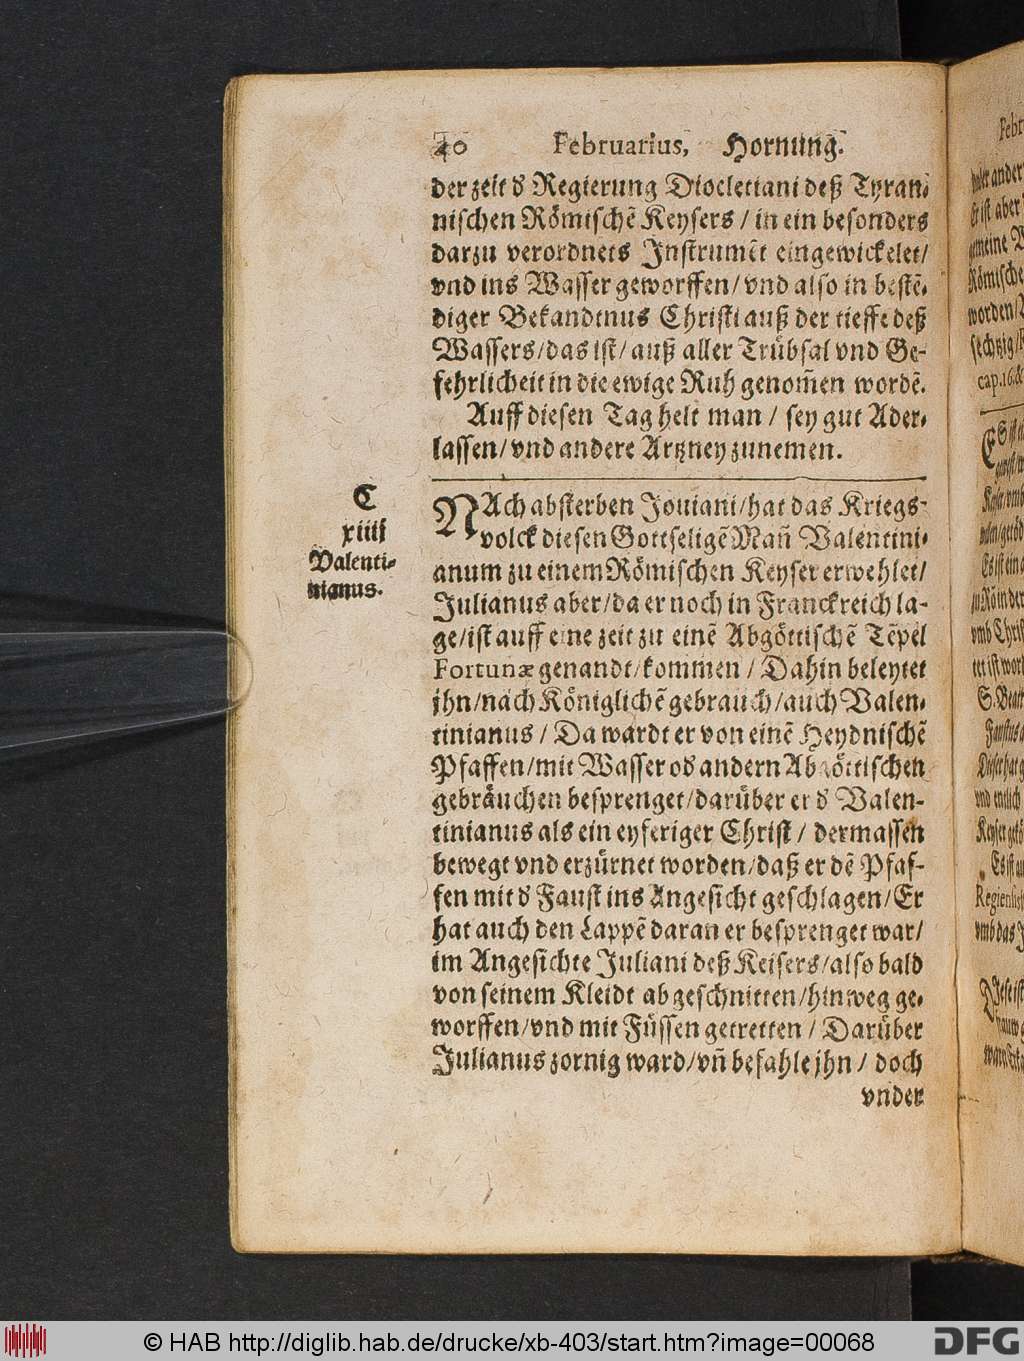 40 Februarius, Hornung.
der zeit d Regierung Diocletiani deß Tyran-
nischen Römischē Keysers / in ein besonders
darzu verordnets Instrumēt eingewickelet/
vnd ins Wasser geworffen/ vnd also in bestē-
diger Bekandtnus Christi auß der tieffe deß
Wassers/das ist/ auß aller Trübsal vnd Ge-
fehrlicheit in die ewige Ruh genom̄en wordē.
Auff diesen Tag helt man / sey gut Ader-
lassen/ vnd andere Artzney zunemen.
C
xiiij
Valenti-
nianus.
NAch absterben Jouiani/hat das Kriegs-
volck diesen Gottseligē Man̄ Valentini-
anum zu einem Römischen Keyser erwehlet/
Julianus aber/da er noch in Franckreich la-
ge/ist auff eine zeit zu einē Abgöttischē Tēpel
Fortunæ genandt/kommen / Dahin beleytet
jhn/nach Königlichē gebrauch/auch Valen-
tinianus / Da wardt er von einē Heydnischē
Pfaffen/mit Wasser od andern Abgöttischen
gebräuchen besprenget/darüber er d Valen-
tinianus als ein eyferiger Christ / dermassen
bewegt vnd erzürnet worden/daß er dē Pfaf-
fen mit d Faust ins Angesicht geschlagen/Er
hat auch den Lappē daran er besprenget war/
im Angesichte Juliani deß Keisers/also bald
von seinem Kleidt abgeschnitten/hinweg ge-
worffen/vnd mit Füssen getretten / Darüber
Julianus zornig ward/vn̄ befahle jhn / doch
vnder
Febr
cap.16.
© HAB http://diglib.hab.de/drucke/xb-403/start.htm?image=00068
DFG